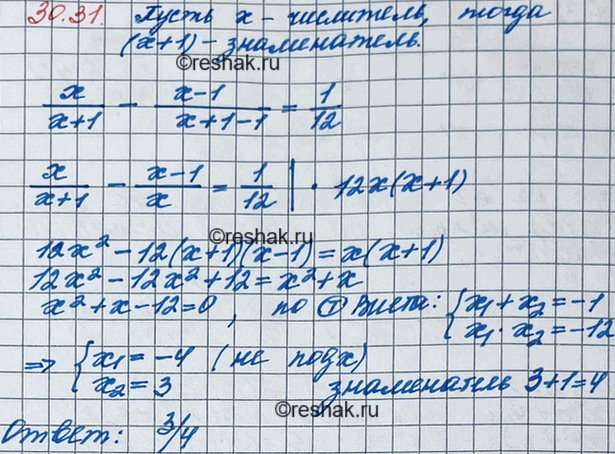 30.31. Пусть x - числитель, тогда
(x+1) - знаменатель.
©reshak.ru
x/(x+1) - (x-1)/(x+1-1) = 1/12
x/(x+1) - (x-1)/x = 1/12 | · 12x(x+1)
©reshak.ru
12x² - 12(x+1)(x-1) = x(x+1)
12x² - 12x² + 12 = x² + x
x² + x - 12 = 0, по Ⓣ Виета: { x₁ + x₂ = -1
{ x₁ · x₂ = -12
⇒ { x₁ = -4 (не подх)
{ x₂ = 3 знаменатель 3+1=4
©reshak.ru
Ответ: 3/4